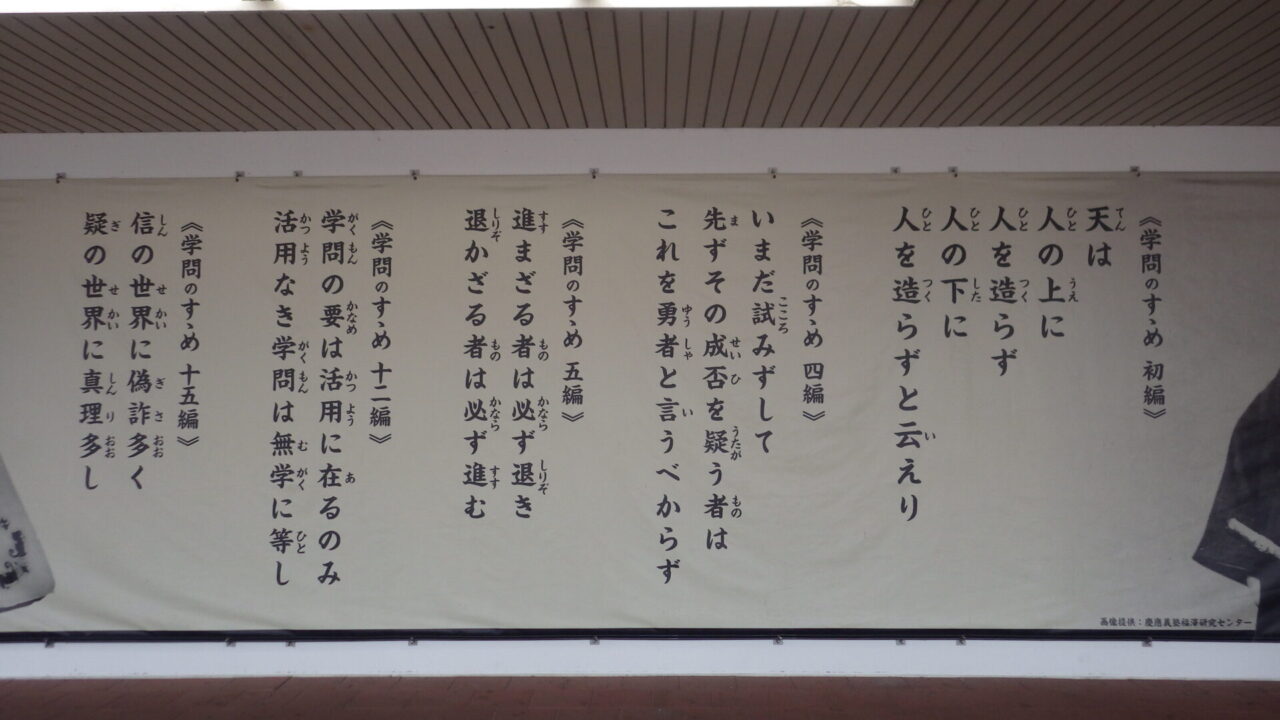 《学問のすゝめ 初編》
天は
人の上に
人を造らず
人の下に
人を造らずと云えり
《学問のすゝめ 四編》
いまだ試みずして
先ずその成否を疑う者は
これを勇者と言うべからず
《学問のすゝめ 五編》
進まざる者は必ず退き
退かざる者は必ず進む
《学問のすゝめ 十二編》
学問の要は活用に在るのみ
活用なき学問は無学に等し
《学問のすゝめ 十五編》
信の世界に偽詐多く
疑の世界に真理多し
画像提供：慶應義塾福澤研究センター